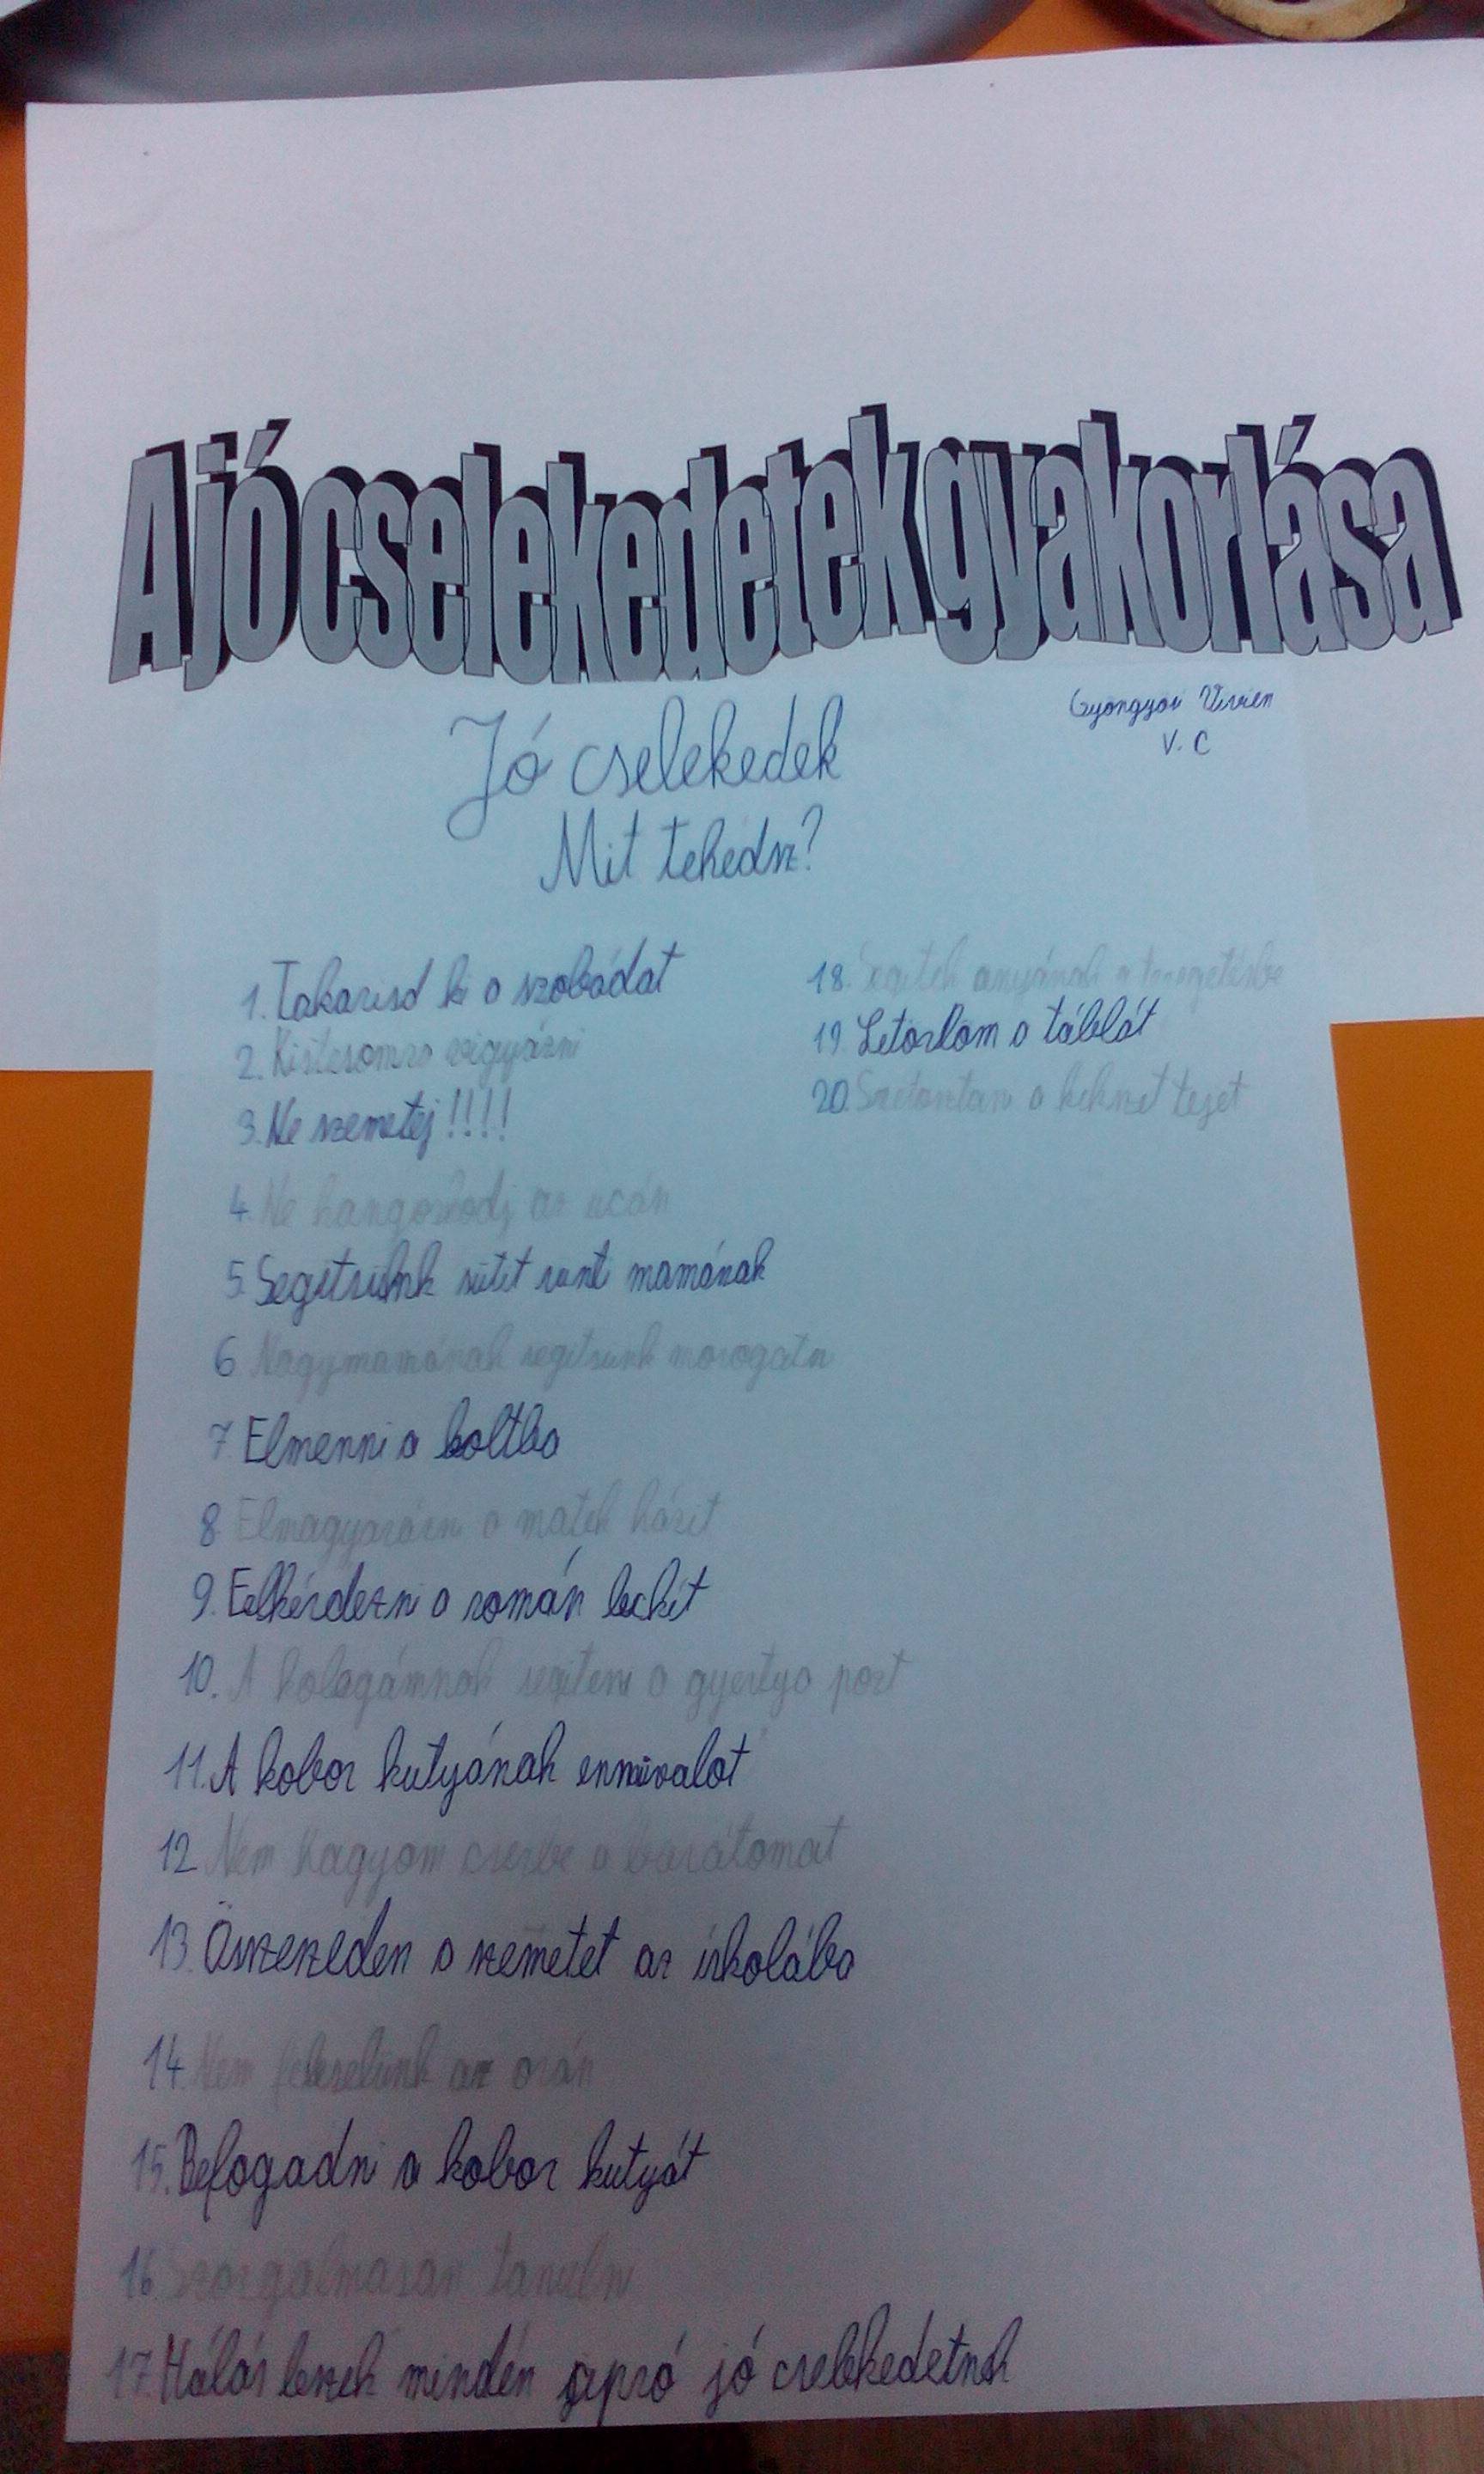 A jó cselekedetek gyakorlása
Gyöngyösi Vivien
V. C
Jó cselekedek
Mit tehedsz?
1. Takarisd ki a szobádat
2. Kistesomra vigyázni
3. Ne szemetej!!!!
4. Ne hangoskodj az ucán
5. Segitsünk sütit sünt mamának
6 Nagymamának segitsunk
7. Elmenni a boltba
8 Elmagyarázni a matek házit
9. Felkérdezni a román leckét
10. A kolegámnak segiteni a gyertya
11. A kobor kutyának ennivalot
12 Nem hagyom cserbe a barátomat
13. Összeszeden a szemetet az iskolába
14. Nem feleselünk az orán
15. Befogadni a kobor kutyát
16 Szorgalmasan tanulni
17. Hálás leszek minden apró jó cselekedetnek
18. Segitek anyának a teregetésbe
19. Letorlom a táblát
20. Szetosztani a kekszet tejet